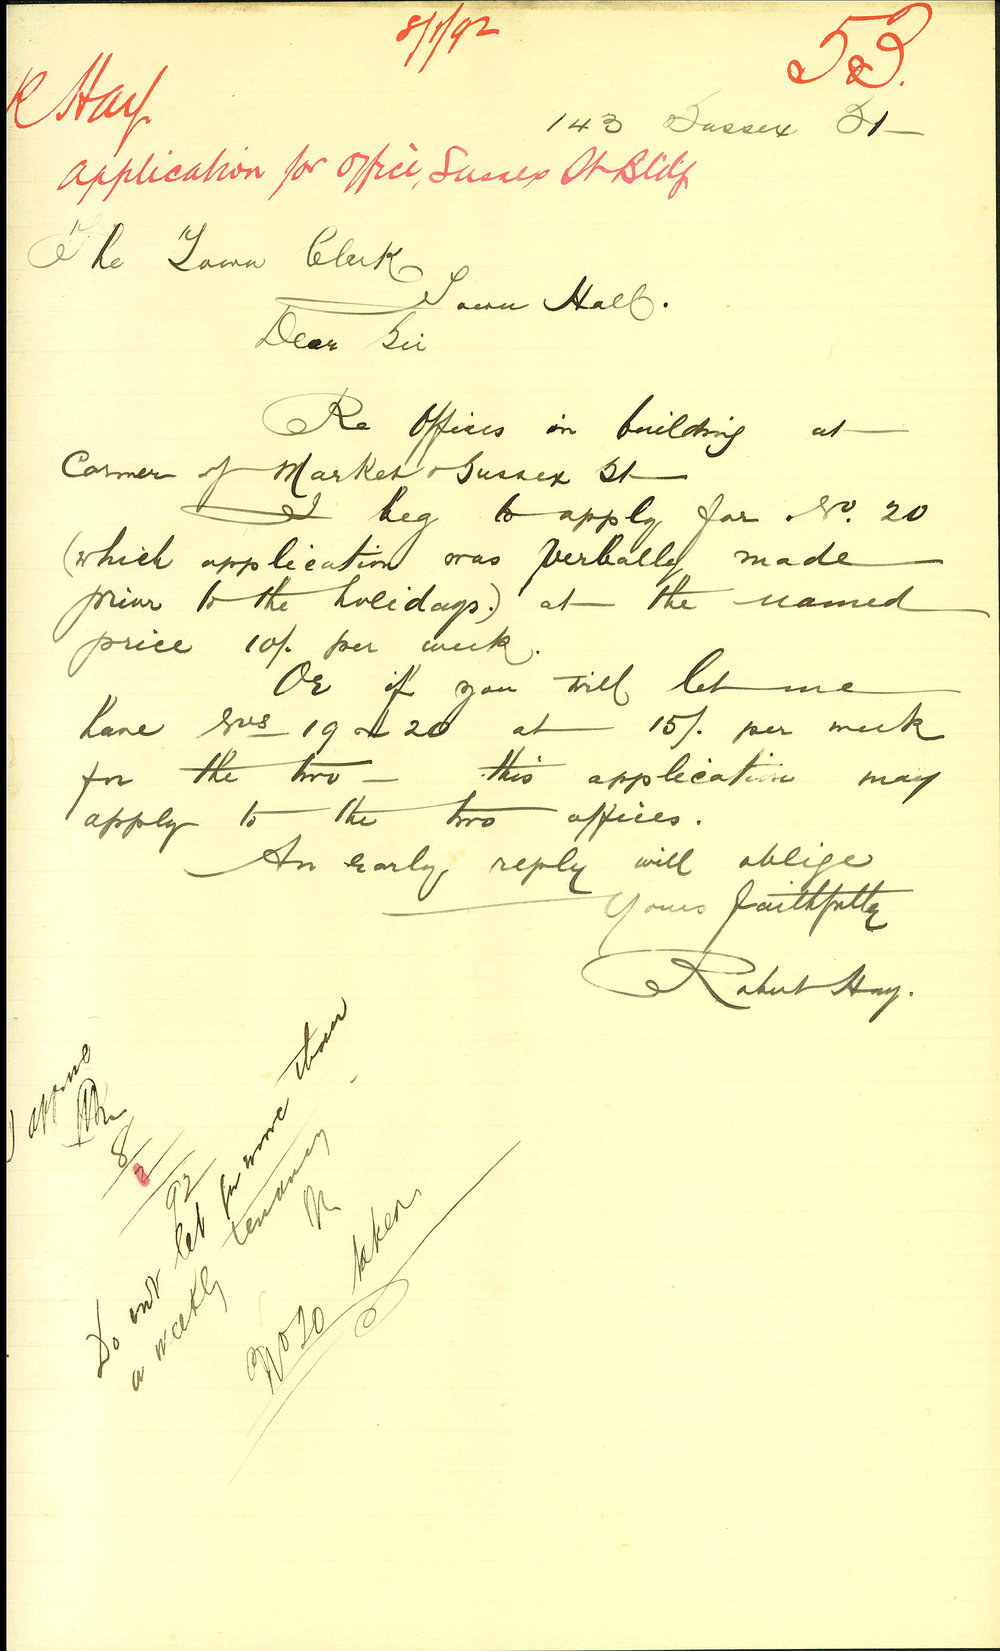 8/1/92
53.
R Hay.
143 Sussex St
Application for Office, Sussex St Bldg
The Town Clerk
Town Hall.
Dear Sir
Re Offices in building at
Corner of Market & Sussex St
I beg to apply for No. 20
(which application was verbally made
prior to the holidays) at the named
price 10/. per week.
Or if you will let me
have Nos 19 & 20 at 15/. per week
for the two - this application may
apply to the two offices.
An early reply will oblige
Yours faithfully
Robert Hay.
I approve
8/1/92
Do not let for more than
a weekly tenancy
No 20 taken